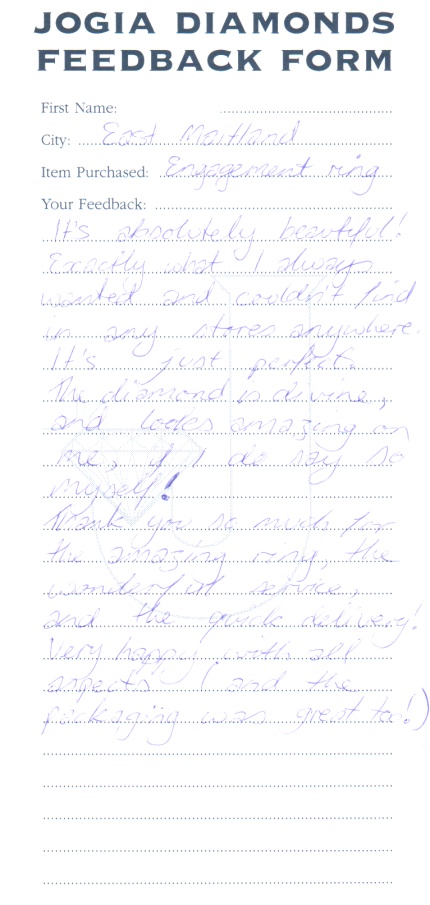 JOGIA DIAMONDS
FEEDBACK FORM
First Name:
City: East Maitland
Item Purchased: Engagement ring
Your Feedback:
It's absolutely beautiful!
Exactly what I always
wanted and couldn't find
in any stores anywhere.
It's just perfect.
The diamond is divine,
and looks amazing on
me, if I do say so
myself!
Thank you so much for
the amazing ring, the
wonderful service,
and the quick delivery!
Very happy with all
aspects (and the
packaging was great too!)